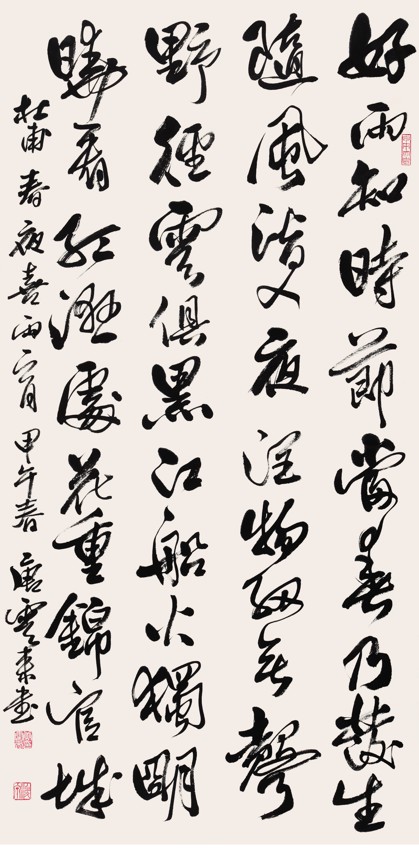 好雨知時節當春乃發生
隨風潛入夜潤物細無聲
野徑雲俱黑江船火獨明
曉看紅濕處花重錦官城
杜甫春夜喜雨一首甲午春唐雲來書